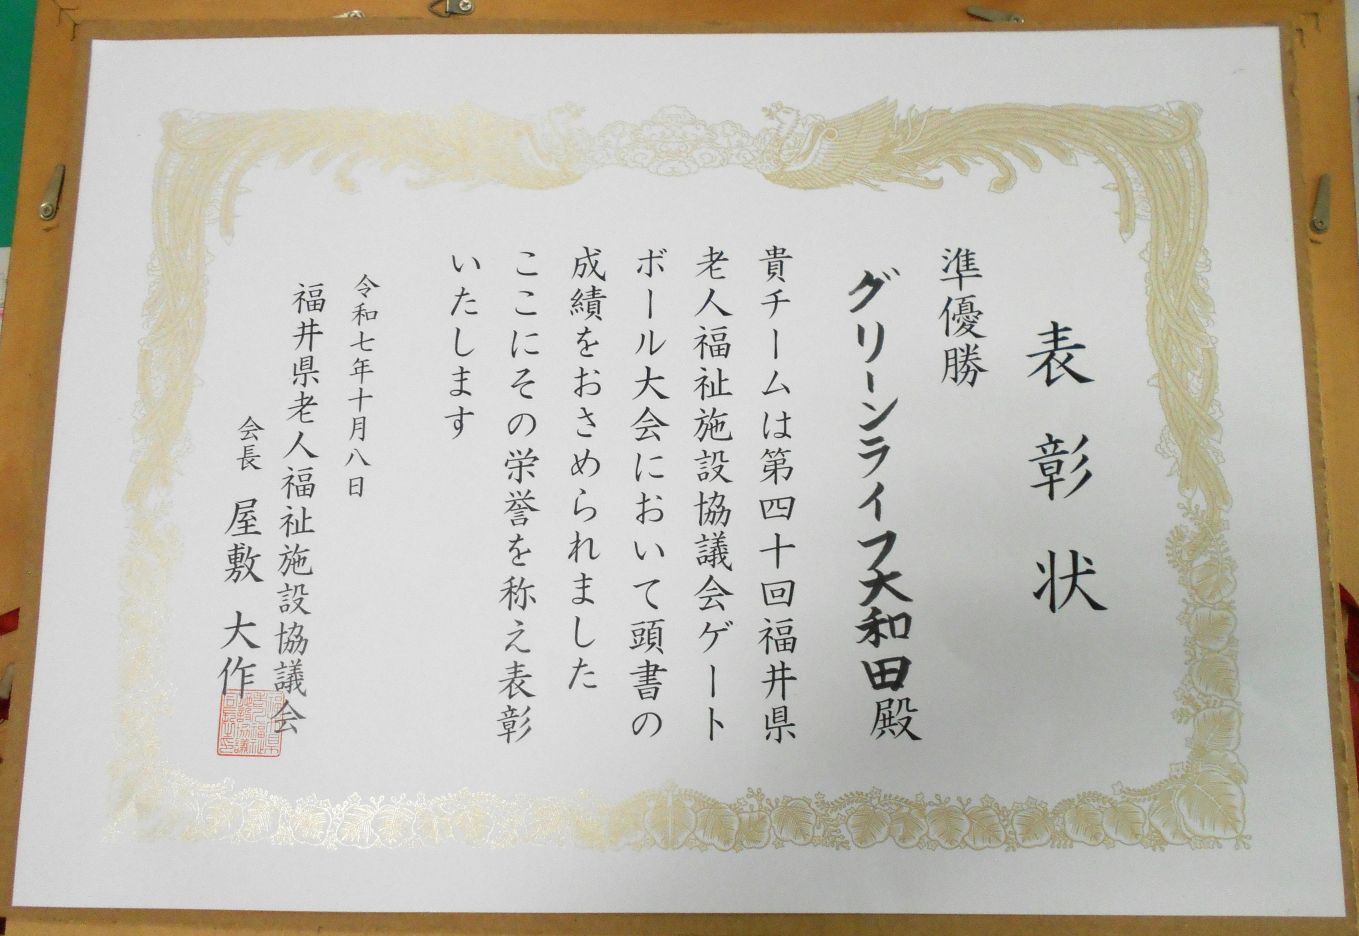 表彰状
準優勝
グリーンライフ大和田殿
貴チームは第四十回福井県
老人福祉施設協議会ゲート
ボール大会において頭書の
成績をおさめられました
ここにその栄誉を称え表彰
いたします
令和七年十月八日
福井県老人福祉施設協議会
会長 屋敷 大作